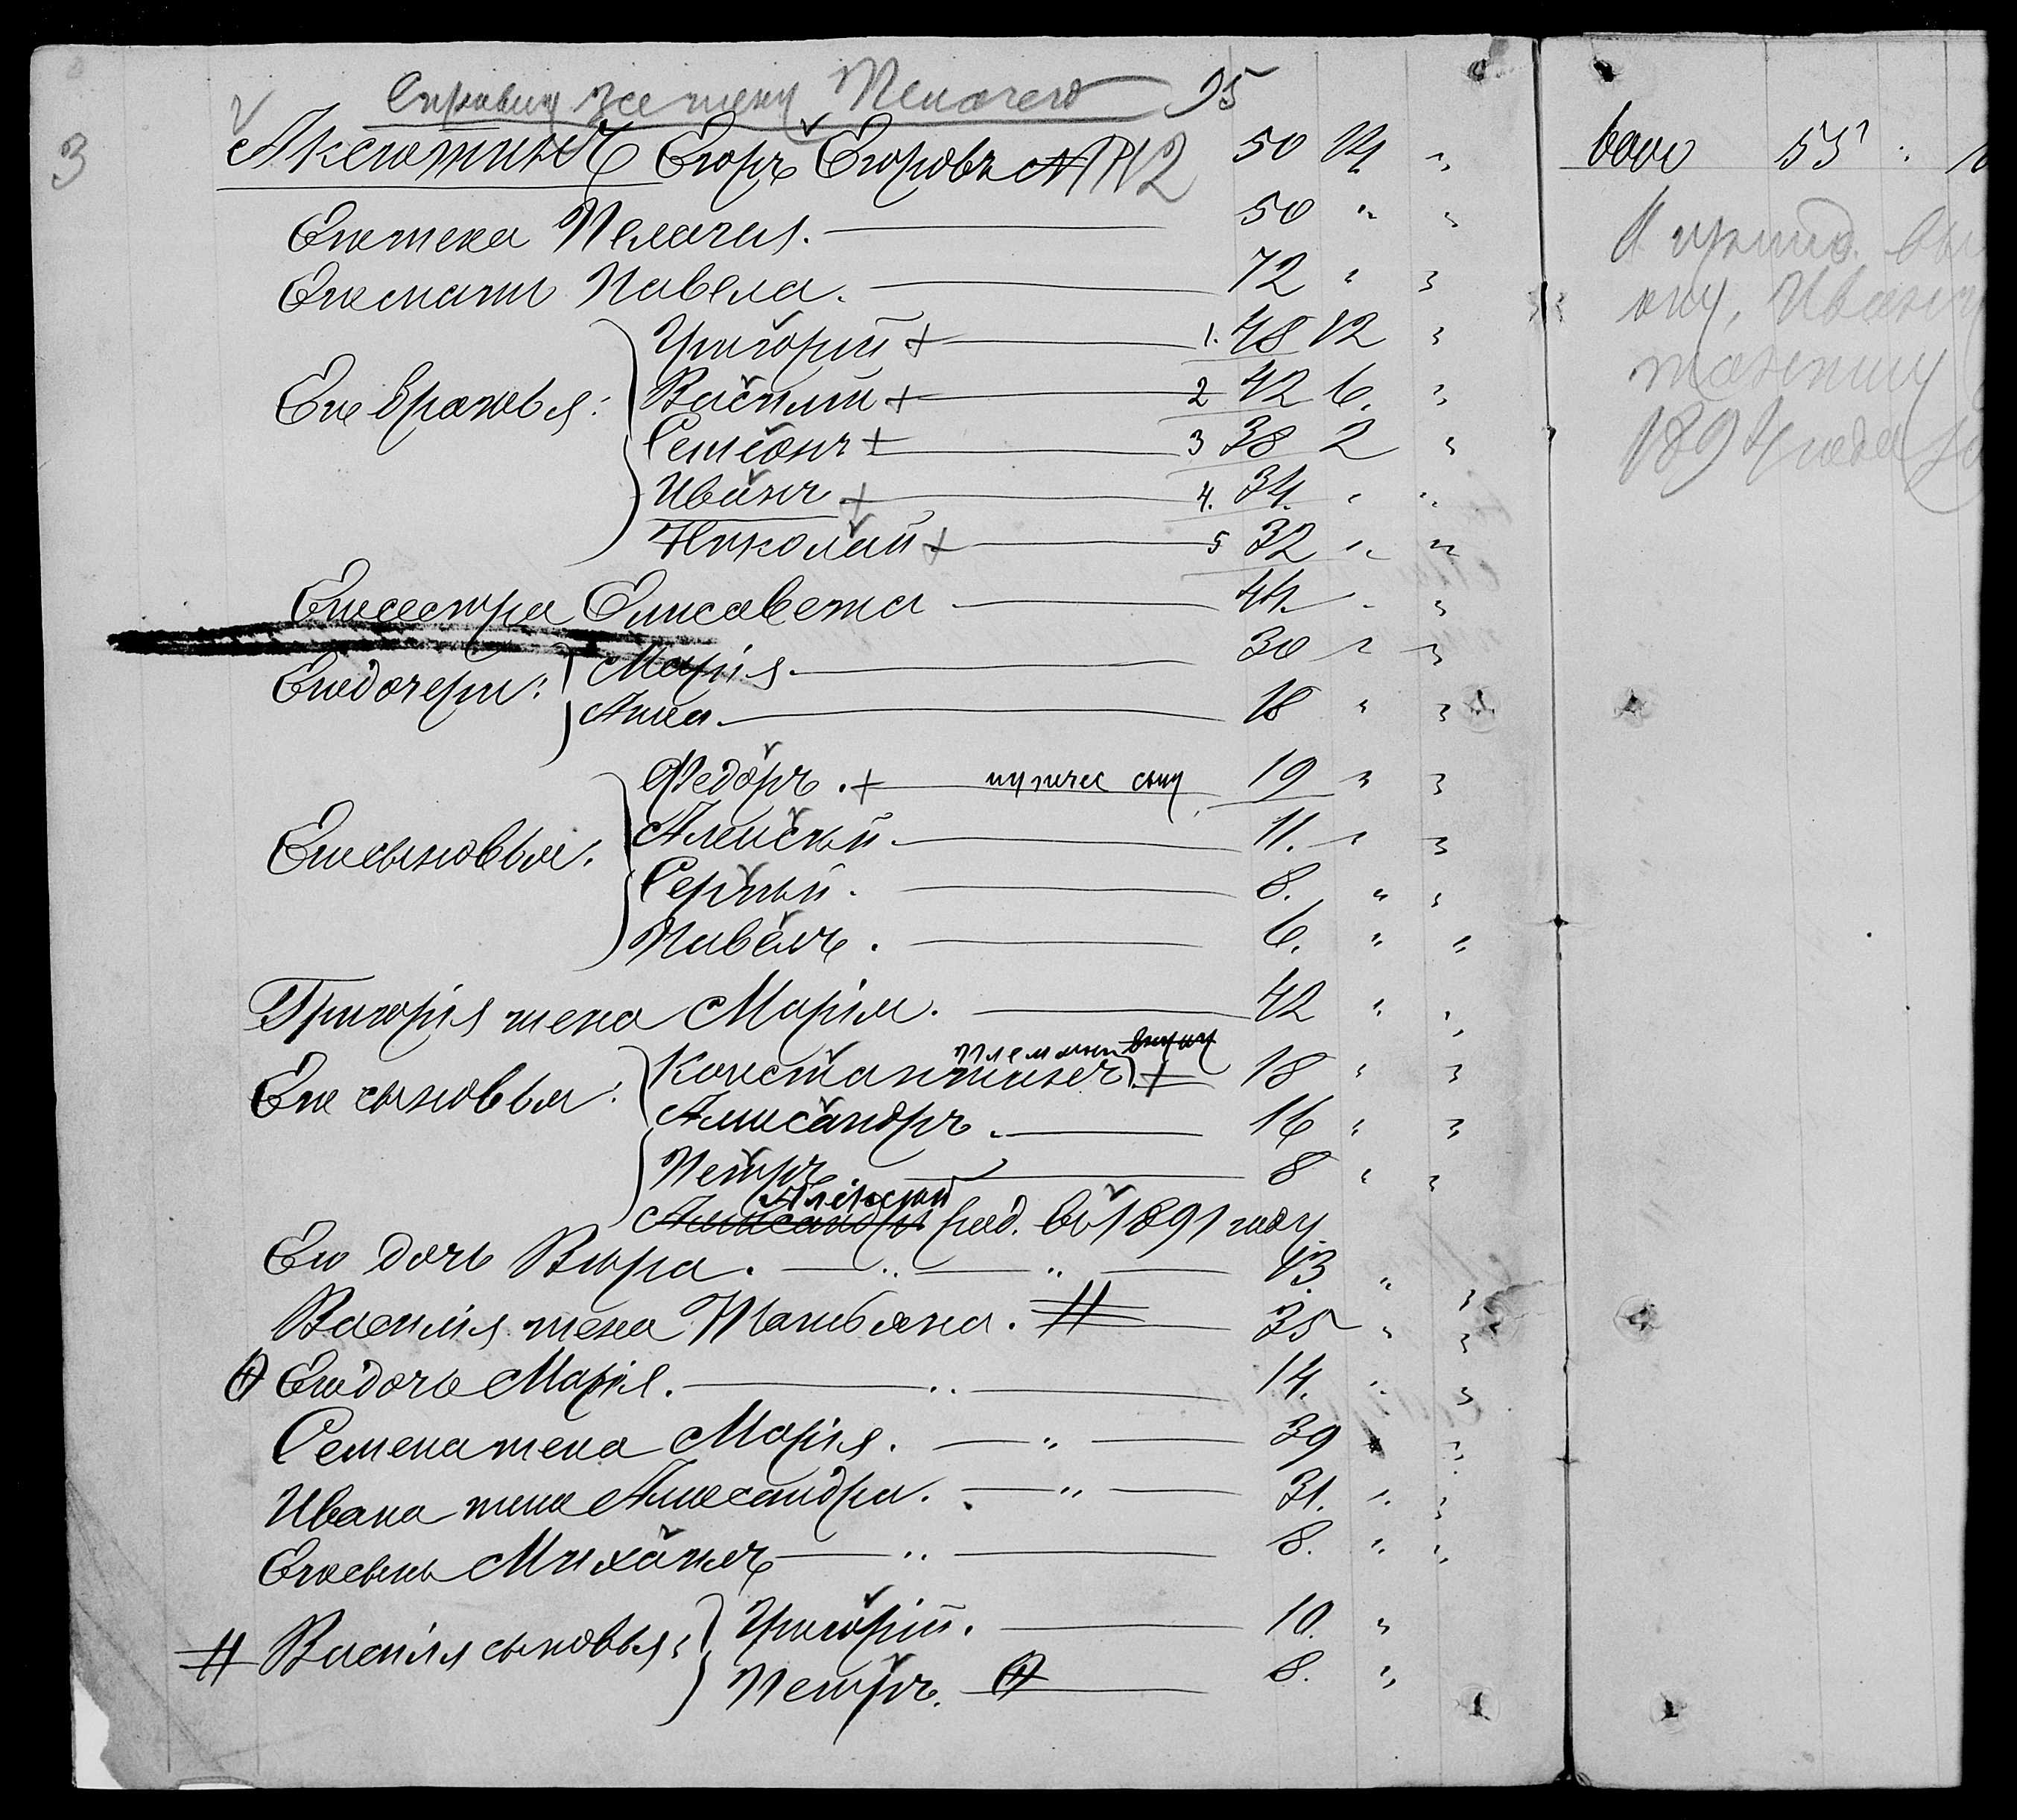 95
3
Аксютинъ Егоръ Егоровъ №12 50 24 "
Его жена Пелагея. 50 " "
Его мати Павела. 72 " "
Его братовья:
Григорий + 1. 48 12 "
Василий + 2 42 6. "
Семёонъ + 3 38 2 "
Иванъ + 4. 34. " "
Николай + 5 32 " "
Его сестра Елисавета 44. " "
Его дочери:
Марія. 30 " "
Анна. 18 " "
Его сыновья:
Федоръ. + 19 " "
Алексѣй. 11. " "
Сергѣй. 8. " "
Павелъ. 6. " "
Григорія жена Марія. 42 " "
Его сыновья:
племян внуку
Константинъ + 18 " "
Александръ. 16 " "
Петръ 8 " "
Алексѣй
Александръ род. въ 1891 году
Его дочь Вѣра. 13. " "
Василія жена Татьяна. # 35 " "
Его дочь Марія. 14. " "
Семена жена Марія. 39 " "
Ивана жена Александра. 31. " "
Его сынъ Михаилъ 8. " "
# Василія сыновья:
Григорій. 10. "
Петръ. 8. "
55
1894 года